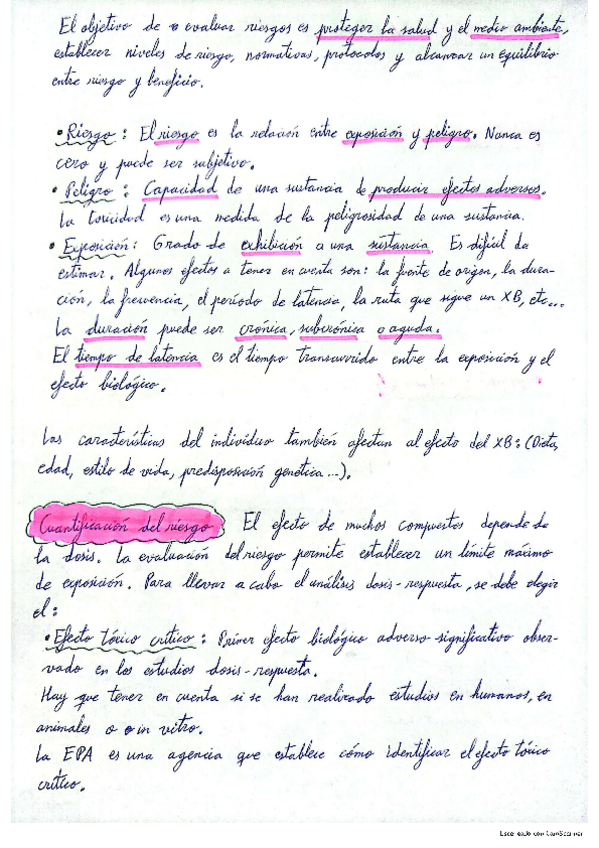 El objetivo de evaluar riesgos es proteger la salud y el medio ambiente,
establecer niveles de riesgo, normativas, protocolos y alcanzar un equilibrio
entre riesgo y beneficio.
• Riesgo: El riesgo es la relación entre exposición y peligro. Nunca es
cero y puede ser subjetivo.
• Peligro: Capacidad de una sustancia de producir efectos adversos.
La toxicidad es una medida de la peligrosidad de una sustancia.
• Exposición: Grado de exhibición a una sustancia. Es difícil de
estimar. Algunos efectos a tener en cuenta son: la fuente de origen, la dura-
ción, la frecuencia, el período de latencia, la ruta que sigue un XB, etc...
La duración puede ser crónica, subcrónica o aguda.
El tiempo de latencia es el tiempo transcurrido entre la exposición y el
efecto biológico.
Las características del individuo también afectan al efecto del XB: (Dieta,
edad, estilo de vida, predisposición genética...).
Cuantificación del riesgo El efecto de muchos compuestos depende de
la dosis. La evaluación del riesgo permite establecer un límite máximo
de exposición. Para llevar a cabo el análisis dosis-respuesta, se debe elegir
el:
• Efecto tóxico crítico: Primer efecto biológico adverso significativo obser-
vado en los estudios dosis-respuesta.
Hay que tener en cuenta si se han realizado estudios en humanos, en
animales o in vitro.
La EPA es una agencia que establece cómo identificar el efecto tóxico
crítico.
Escaneado con CamScanner